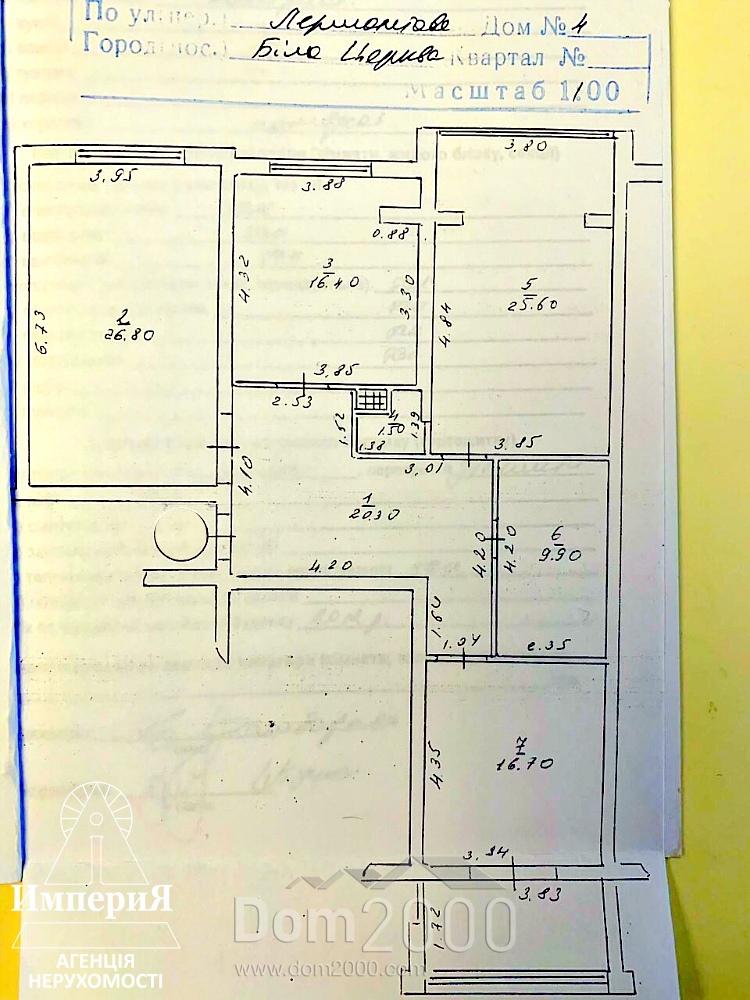 По ул.(пер.) Лермонтова Дом № 4
Город(пос.) Біла Церква Квартал №
Масштаб 1/00
3,95
3,88
3,80
0,88
3
16,40
5
25,60
4,32
3,30
4,84
2
26,80
6,73
3,85
2,53
1,52
4
1,50
1,39
1,38
3,85
3,01
4,10
1
20,30
6
9,90
4,20
4,20
4,20
1,64
1,04
2,35
7
16,70
4,35
3,94
3,83
1,72
ИмпериЯ
АГЕНЦІЯ
НЕРУХОМОСТІ
Dom2000
www.dom2000.com